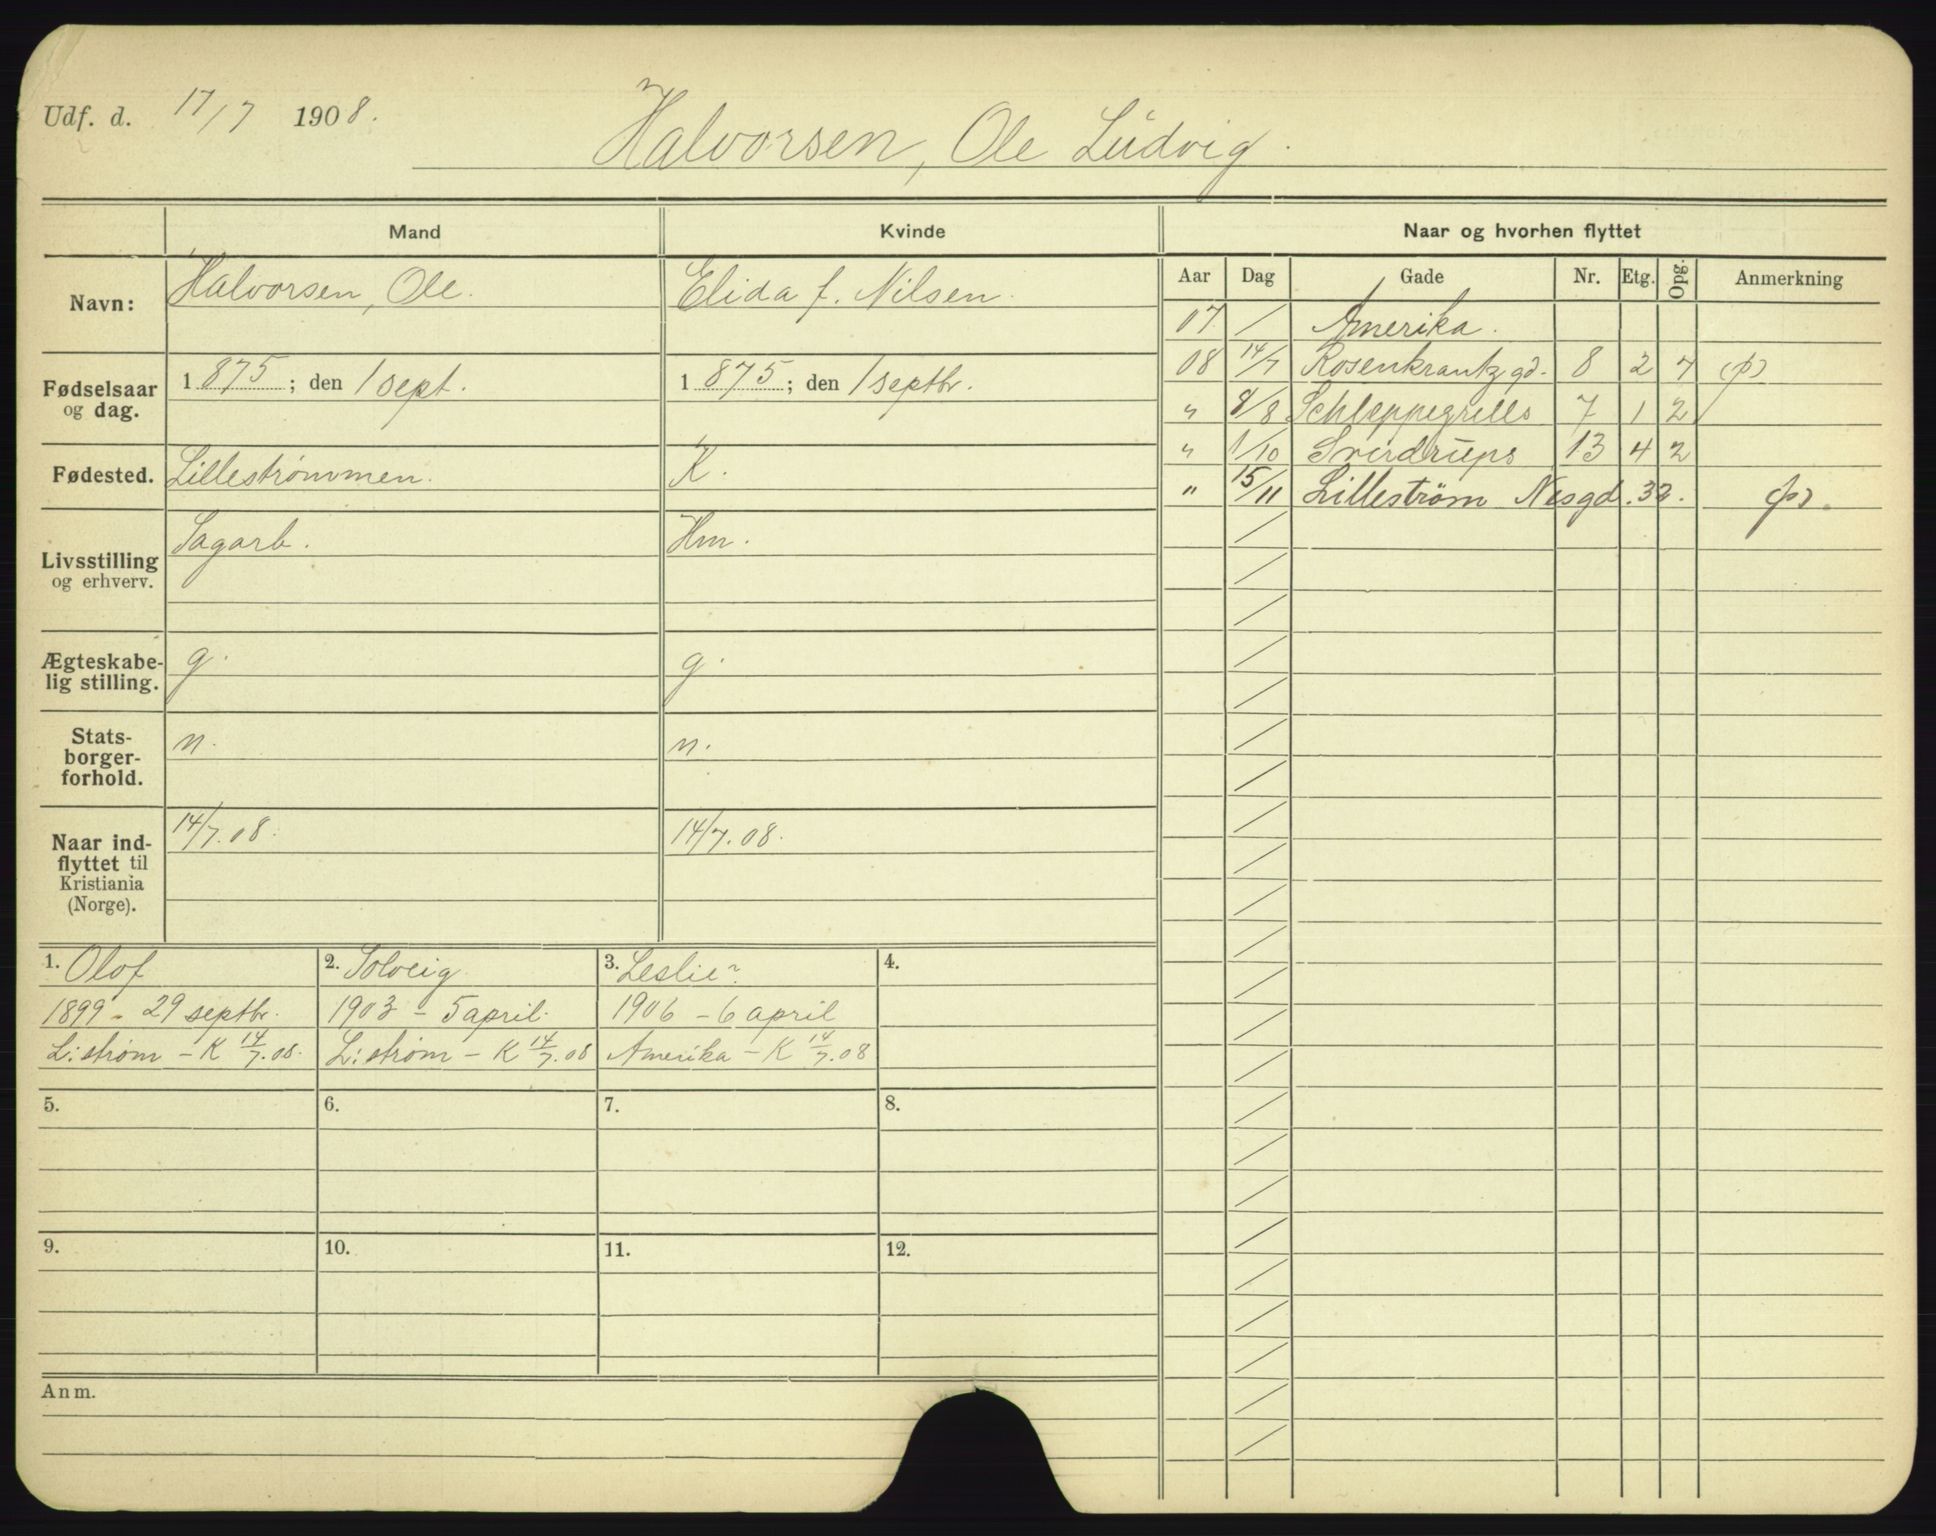 Udf. d. 17/7 1908.
Halvorsen, Ole Ludvig.
Mand
Kvinde
Naar og hvorhen flyttet
Navn:
Halvorsen, Ole.
Elida f. Nilsen.
Fødselsaar og dag.
1875; den 1 sept.
1875; den 1 septbr.
Fødested.
Lillestrømmen.
K.
Livsstilling og erhverv.
Sagarb.
Hm.
Ægteskabelig stilling.
g.
g.
Stats-borger-forhold.
n.
n.
Naar ind-flyttet til Kristiania (Norge).
14/7.08.
14/7.08.
Aar Dag Gade Nr. Etg. Opg. Anmerkning
07. / Amerika.
08 14/7 Rosenkrantz gd. 8 2 7 (p)
" 8/8 Schleppegrells 7 1 2
" 1/10 Sverdrups 13 4 2
" 15/11 Lilleström Nesgd. 32. (p).
1. Olof
1899 - 29 septbr.
L:strøm - K 14/7.08.
2. Solveig
1903 - 5 april.
L:strøm - K 14/7.08
3. Leslie?
1906 - 6 april
Amerika - K 14/7.08
4.
5.
6.
7.
8.
9.
10.
11.
12.
Anm.